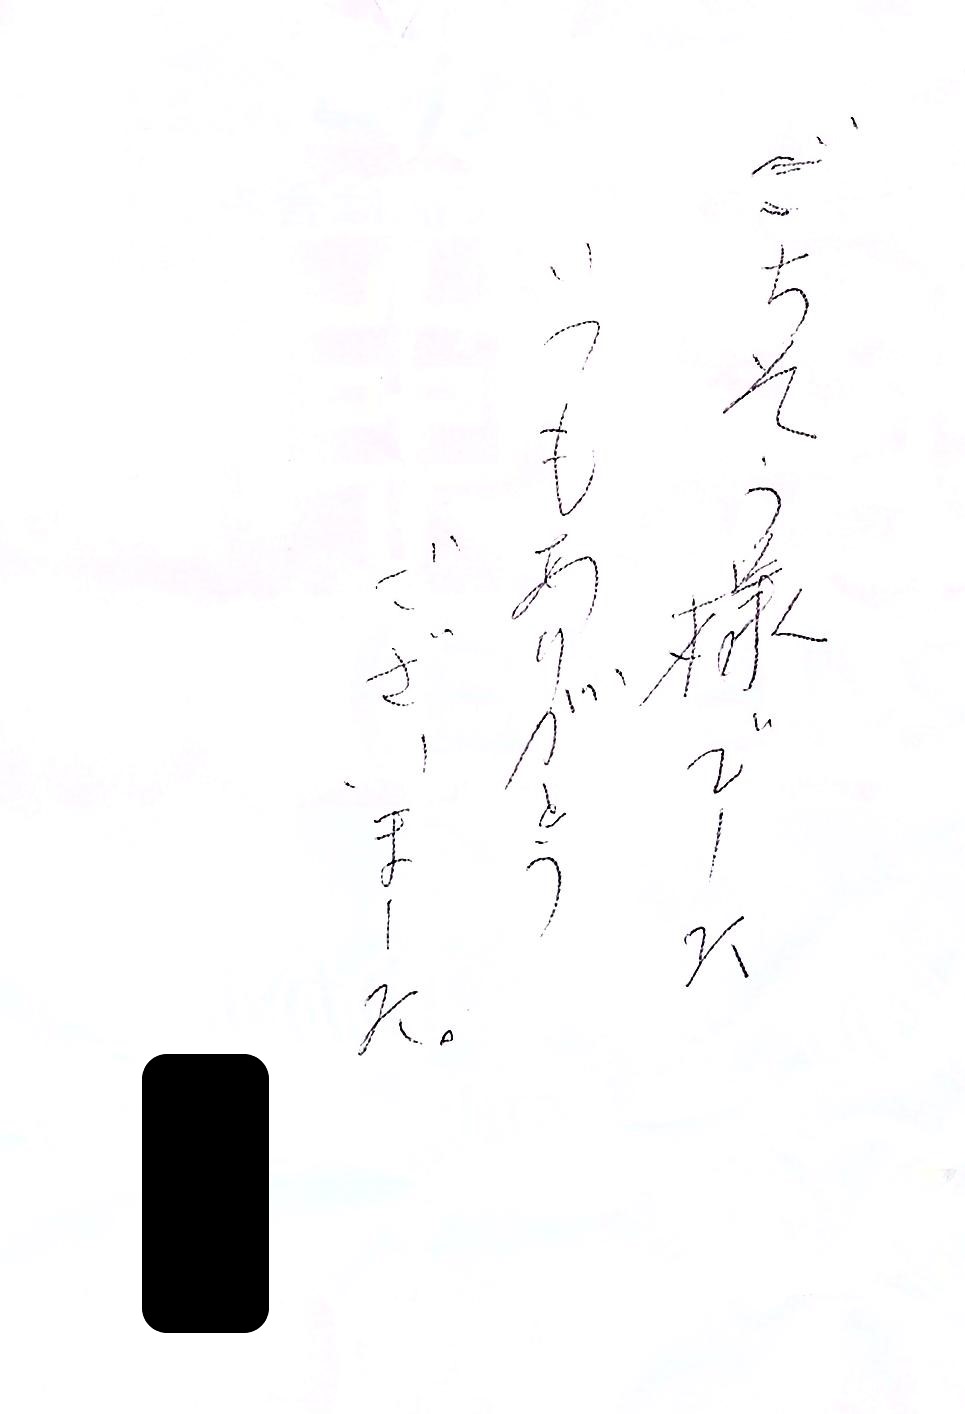 ごちそう様でした
いつもありがとう
ございました。